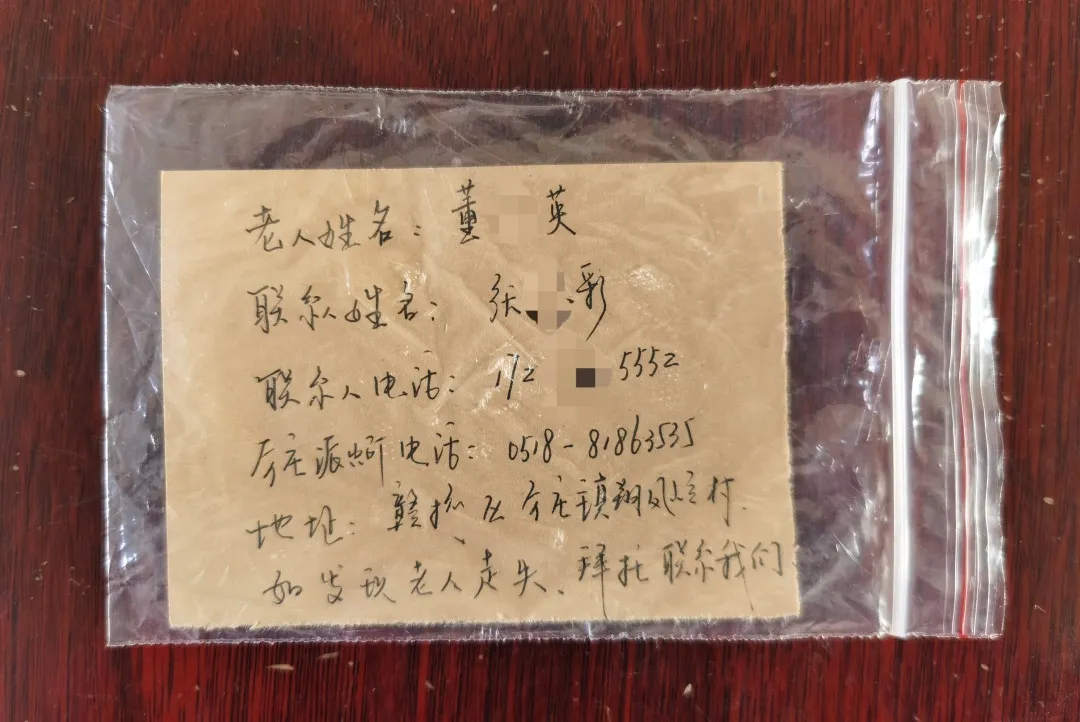 老人姓名：董 英
联系人姓名：张 彩
联系人电话： 5552
厉庄派出所电话：0518-81863535
地址：赣榆区厉庄镇翔凤 村.
如发现老人走失、拜托联系我们.